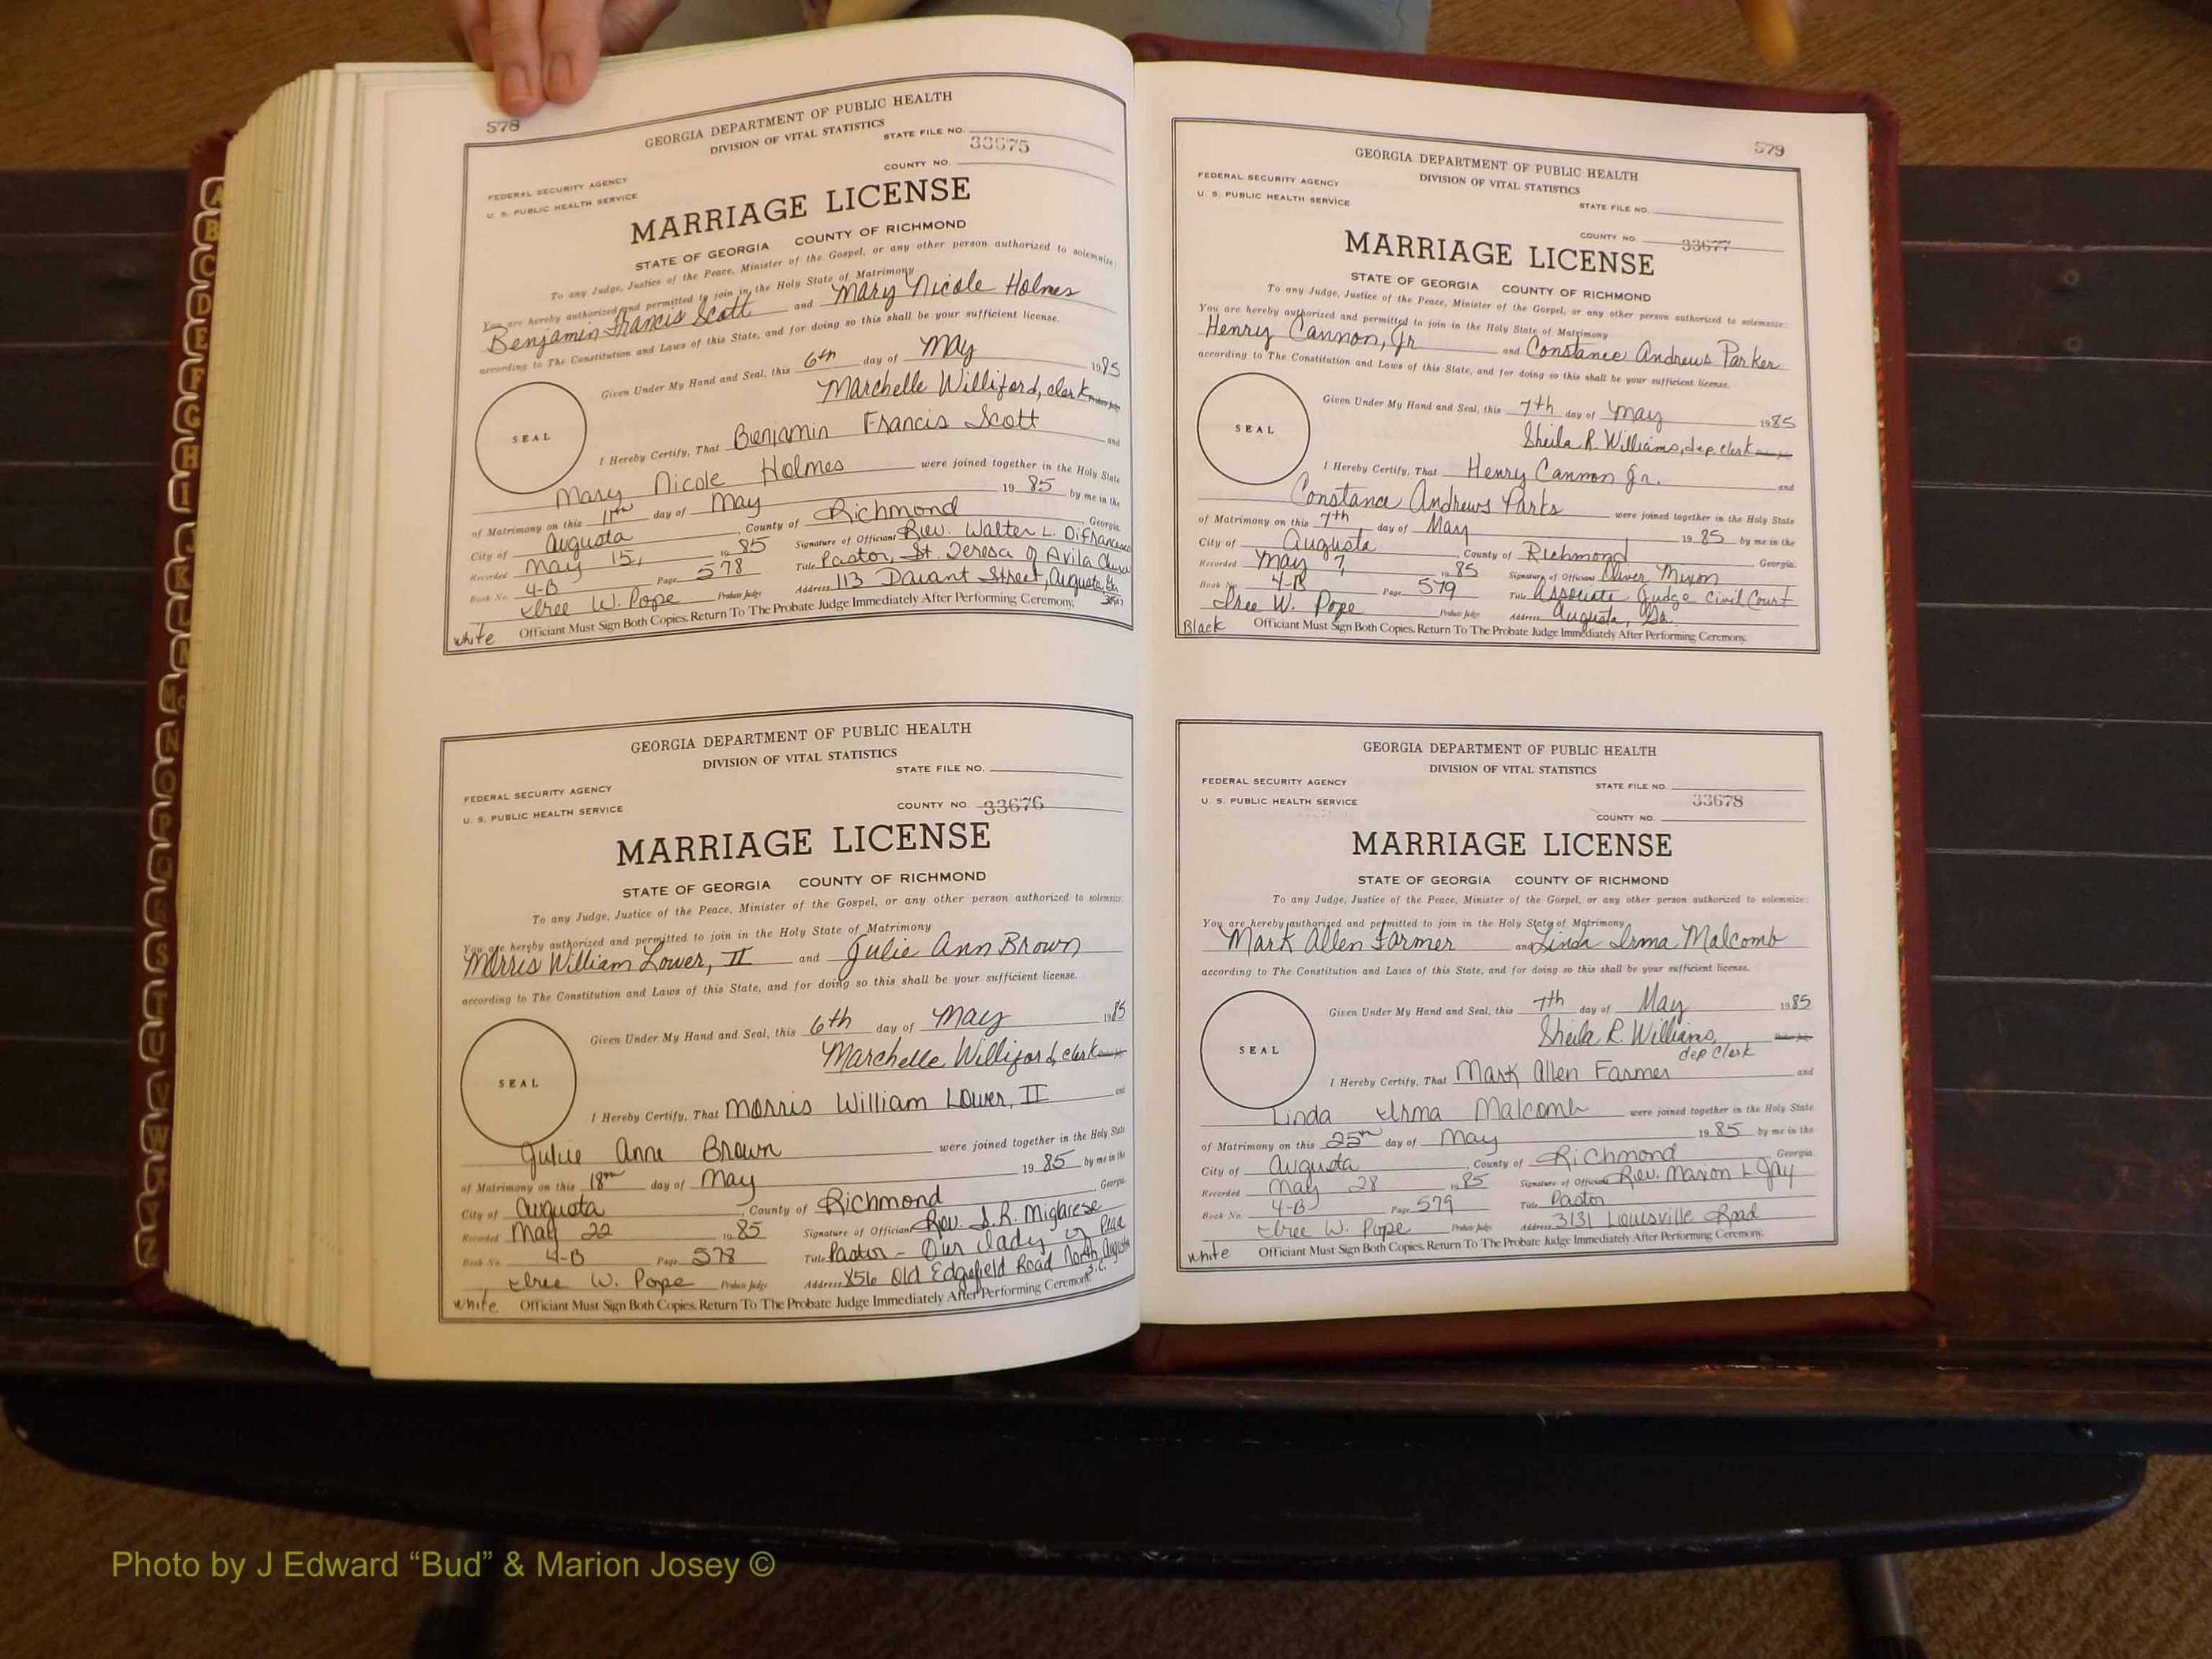 578
GEORGIA DEPARTMENT OF PUBLIC HEALTH
DIVISION OF VITAL STATISTICS
STATE FILE NO.
33675
COUNTY NO.
FEDERAL SECURITY AGENCY
U. S. PUBLIC HEALTH SERVICE
MARRIAGE LICENSE
STATE OF GEORGIA COUNTY OF RICHMOND
To any Judge, Justice of the Peace, Minister of the Gospel, or any other person authorized to solemnize:
You are hereby authorized and permitted to join in the Holy State of Matrimony
Benjamin Francis Scott and Mary Nicole Holmes
according to The Constitution and Laws of this State, and for doing so this shall be your sufficient license.
Given Under My Hand and Seal, this 6th day of May 1985
Marchelle Williford, clerk Probate Judge
SEAL
I Hereby Certify, That Benjamin Francis Scott and
Mary Nicole Holmes were joined together in the Holy State
of Matrimony on this 11th day of May 19 85 by me in the
City of Augusta, County of Richmond, Georgia.
Recorded May 15, 19 85 Signature of Official Rev. Walter L. DiFrancesco
Book No. 4-B Page 578 Title Pastor, St. Teresa of Avila Church
Iree W. Pope Probate Judge Address 113 Davant Street, Augusta, Ga
white Officiant Must Sign Both Copies. Return To The Probate Judge Immediately After Performing Ceremony.
GEORGIA DEPARTMENT OF PUBLIC HEALTH
DIVISION OF VITAL STATISTICS
STATE FILE NO.
FEDERAL SECURITY AGENCY
U. S. PUBLIC HEALTH SERVICE
COUNTY NO. 33676
MARRIAGE LICENSE
STATE OF GEORGIA COUNTY OF RICHMOND
To any Judge, Justice of the Peace, Minister of the Gospel, or any other person authorized to solemnize:
You are hereby authorized and permitted to join in the Holy State of Matrimony
Morris William Lower, II and Julie Ann Brown
according to The Constitution and Laws of this State, and for doing so this shall be your sufficient license.
Given Under My Hand and Seal, this 6th day of May 1985
Marchelle Williford, clerk Probate Judge
SEAL
I Hereby Certify, That Morris William Lower, II and
Julie Anne Brown were joined together in the Holy State
of Matrimony on this 18th day of May 19 85 by me in the
City of Augusta, County of Richmond, Georgia.
Recorded May 22 19 85 Signature of Official Rev. S.R. Miglarese
Book No. 4-B Page 578 Title Pastor - Our Lady of Peace
Iree W. Pope Probate Judge Address 856 Old Edgefield Road North Augusta S.C.
white Officiant Must Sign Both Copies. Return To The Probate Judge Immediately After Performing Ceremony.
579
GEORGIA DEPARTMENT OF PUBLIC HEALTH
DIVISION OF VITAL STATISTICS
FEDERAL SECURITY AGENCY
U. S. PUBLIC HEALTH SERVICE
STATE FILE NO.
COUNTY NO. 33677
MARRIAGE LICENSE
STATE OF GEORGIA COUNTY OF RICHMOND
To any Judge, Justice of the Peace, Minister of the Gospel, or any other person authorized to solemnize:
You are hereby authorized and permitted to join in the Holy State of Matrimony
Henry Cannon, Jr and Constance Andrews Parker
according to The Constitution and Laws of this State, and for doing so this shall be your sufficient license.
Given Under My Hand and Seal, this 7th day of May 1985
Sheila R. Williams, dep. clerk
SEAL
I Hereby Certify, That Henry Cannon Jr. and
Constance Andrews Parks were joined together in the Holy State
of Matrimony on this 7th day of May 19 85 by me in the
City of Augusta, County of Richmond Georgia.
Recorded May 7, 19 85 Signature of Official Oliver Mixon
Book No. 4-B Page 579 Title Associate Judge Civil Court
Iree W. Pope Probate Judge Address Augusta, Ga.
Black Officiant Must Sign Both Copies. Return To The Probate Judge Immediately After Performing Ceremony.
GEORGIA DEPARTMENT OF PUBLIC HEALTH
DIVISION OF VITAL STATISTICS
FEDERAL SECURITY AGENCY
STATE FILE NO.
U. S. PUBLIC HEALTH SERVICE
33678
COUNTY NO.
MARRIAGE LICENSE
STATE OF GEORGIA COUNTY OF RICHMOND
To any Judge, Justice of the Peace, Minister of the Gospel, or any other person authorized to solemnize:
You are hereby authorized and permitted to join in the Holy State of Matrimony
Mark Allen Farmer and Linda Irma Malcomb
according to The Constitution and Laws of this State, and for doing so this shall be your sufficient license.
Given Under My Hand and Seal, this 7th day of May 1985
Sheila R. Williams,
dep clerk
SEAL
I Hereby Certify, That Mark Allen Farmer and
Linda Irma Malcomb were joined together in the Holy State
of Matrimony on this 25th day of May 19 85 by me in the
City of Augusta, County of Richmond Georgia.
Recorded May 28 19 85 Signature of Official Rev. Marion L Jay
Book No. 4-B Page 579 Title Pastor
Iree W. Pope Probate Judge Address 3131 Louisville Road
white Officiant Must Sign Both Copies. Return To The Probate Judge Immediately After Performing Ceremony.
Photo by J Edward “Bud” & Marion Josey ©